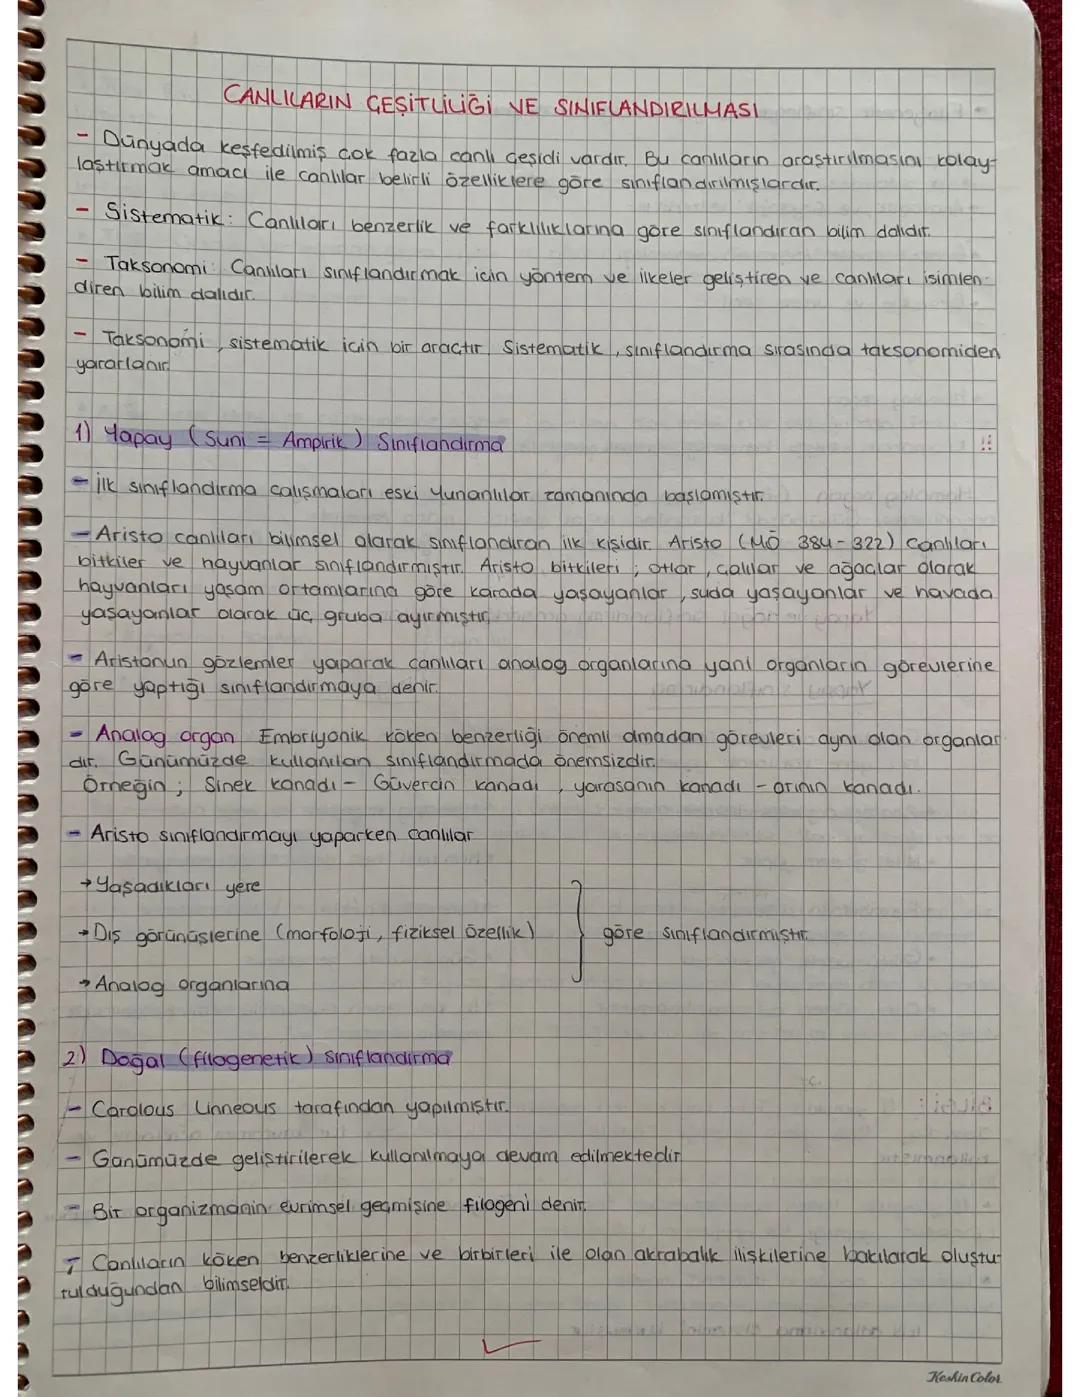 CANLILARIN ÇEŞİTLİLİĞİ VE SINIFLANDIRILMASI
- Dünyada keşfedilmiş çok fazla canlı çeşidi vardır. Bu canlıların araştırılmasını kolay-
laştırmak amacı ile canlılar belirli özelliklere göre sınıflandırılmışlardır.
- Sistematik: Canlıları benzerlik ve farklılıklarına göre sınıflandıran bilim dalıdır.
- Taksonomi: Canlıları sınıflandırmak için yöntem ve ilkeler geliştiren ve canlıları isimlen-
diren bilim dalıdır.
- Taksonomi, sistematik için bir araçtır. Sistematik, sınıflandırma sırasında taksonomiden
yararlanır.
1) Yapay (Suni = Ampirik) Sınıflandırma
- İlk sınıflandırma çalışmaları eski Yunanlılar zamanında başlamıştır.
- Aristo canlıları bilimsel olarak sınıflandıran ilk kişidir. Aristo (MÖ 384-322) canlıları
bitkiler ve hayvanlar sınıflandırmıştır. Aristo bitkileri; otlar, çalılar ve ağaçlar olarak
hayvanları yaşam ortamlarına göre karada yaşayanlar, suda yaşayanlar ve havada
yaşayanlar olarak üç gruba ayırmıştır.
- Aristonun gözlemler yaparak canlıları analog organlarına yani organların görevlerine
göre yaptığı sınıflandırmaya denir.
- Analog organ Embriyonik köken benzerliği önemli olmadan görevleri aynı olan organlar
dır. Günümüzde kullanılan sınıflandırmada önemsizdir.
Örneğin; Sinek kanadı - Güvercin kanadı, yarasanın kanadı - arının kanadı.
- Aristo sınıflandırmayı yaparken canlılar
→ Yaşadıkları yere
→ Dış görünüşlerine (morfoloji, fiziksel özellik) } göre sınıflandırmıştır.
→ Analog organlarına
2) Doğal (filogenetik) sınıflandırma
- Carolous Linneous tarafından yapılmıştır.
- Günümüzde geliştirilerek kullanılmaya devam edilmektedir.
- Bir organizmanın evrimsel geçmişine filogeni denir.
- Canlıların köken benzerliklerine ve birbirleri ile olan akrabalık ilişkilerine bakılarak oluştu
rulduğundan bilimseldir.
Keskin Color